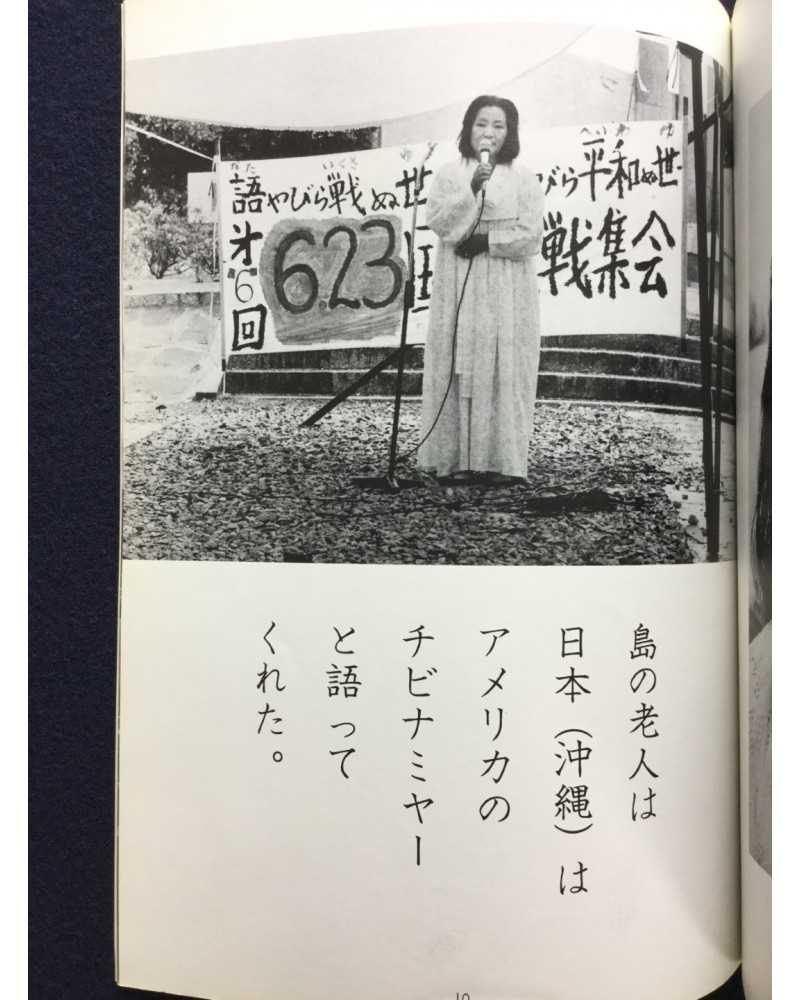 語やびら戦ぬ世
びら平和ぬ世
かた
いくさ
ゆ
へいわ
ゆ
才6回
6.23
戦集会
島の老人は
日本（沖縄）は
アメリカの
チビナミヤー
と語って
くれた。